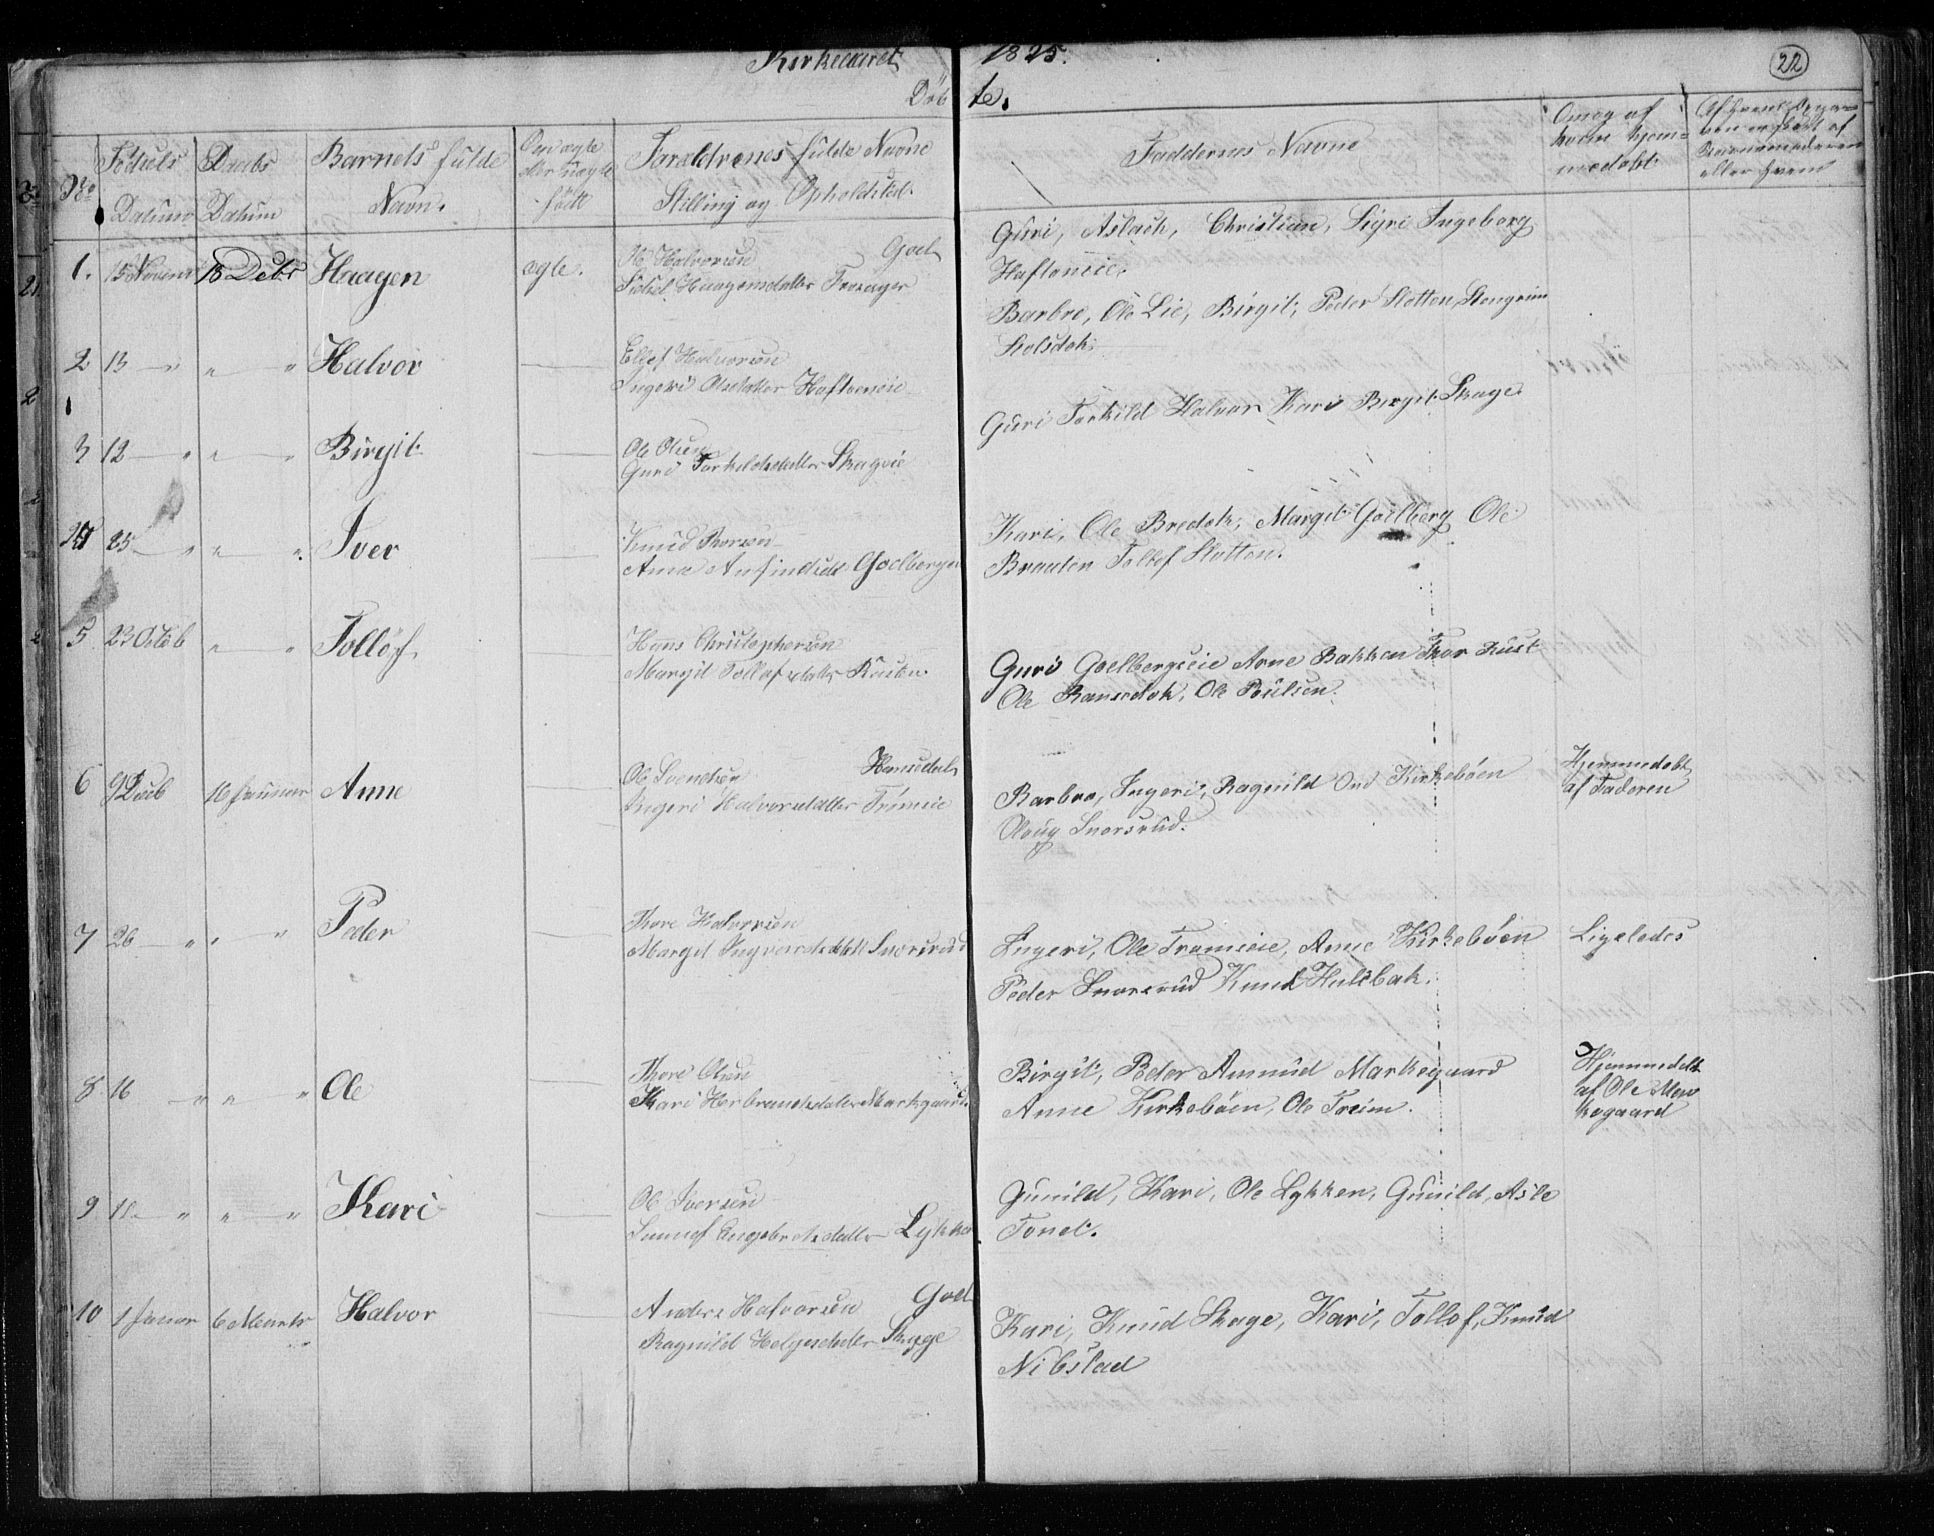 Kirkeaaret 1825.
Döbte.
22
No
Födsels Datum
Daabs Datum
Barnets fulde Navn.
Om ægte eller uægte födt
Forældrenes fulde Navne Stilling og Opholdsted.
Faddernes Navne
Om og af hvem hjemmedøbt
1. 15 Novembr 18 Decbr Haagen ægte.
H Halvorsen Goel
Sidsel Haagensdatter
Guri, Aslach, Christian, Sigri Ingeborg
Haftoneie.
2 13 " " " Halvor
Ellef Halvorsen
Ingeri Olsdatter Haftoneie
Barbro, Ole Lie, Birgit, Peder Slotten, Stengrim
Stolsdok.
3 12 " " " Birgit
Ole Olsen
Guri Torkildsdatter Skageie
Guri Torkild Halvor Kari Birgit Skage.
4 25 " " " Iver
Knud Thorsen
Anne Anfindsdt Goelberge
Kari, Ole Bredok, Margit Goelberg Ole
Braaten Tollef Slotten.
5 23 Octob " " Tollöf.
Hans Christophersen
Margit Tollofsdatter Rusten
Guri Goelbergseie Arne Bakken Thor Rust
Ole Ramsdok, Ole Poulsen.
6 9 Decb 16 Januar Anne
Ole Svendsen Hemsedal
Ingeri Halvorsdatter Trömeie
Barbro, Ingeri, Ragnild Ond Kirkeböen
Olaug Snorsrud.
Hjemmedøbt
af Faderen
7 26 " " " Peder
Thore Halvorsen
Margit Ingvorsdatter Snorsrud
Ingeri, Ole Tromeie, Anne Kirkeböen
Peder Snorsrud Knud Hulebak.
Ligeledes
8 16 " " " Ole
Thore Olsen
Kari Herbrandsdatter Markegaard.
Birgit, Peder Ammud Markegaard
Anne Kirkeböen, Ole Treim.
Hjemmedøbt
af Ole Mar
kegaard
9 " " " Kari
Ole Iversen
Sunnef Engebretsdatter Lykke
Gunild, Kari, Ole Lykken, Gunild, Asle
Tonet.
10 1 Januar 6 Marts Halvor
Anders Halvorsen Goel
Ragnild Helgesdatter Skage
Kari, Knud Skage, Kari, Tollof, Knud
Nibstad